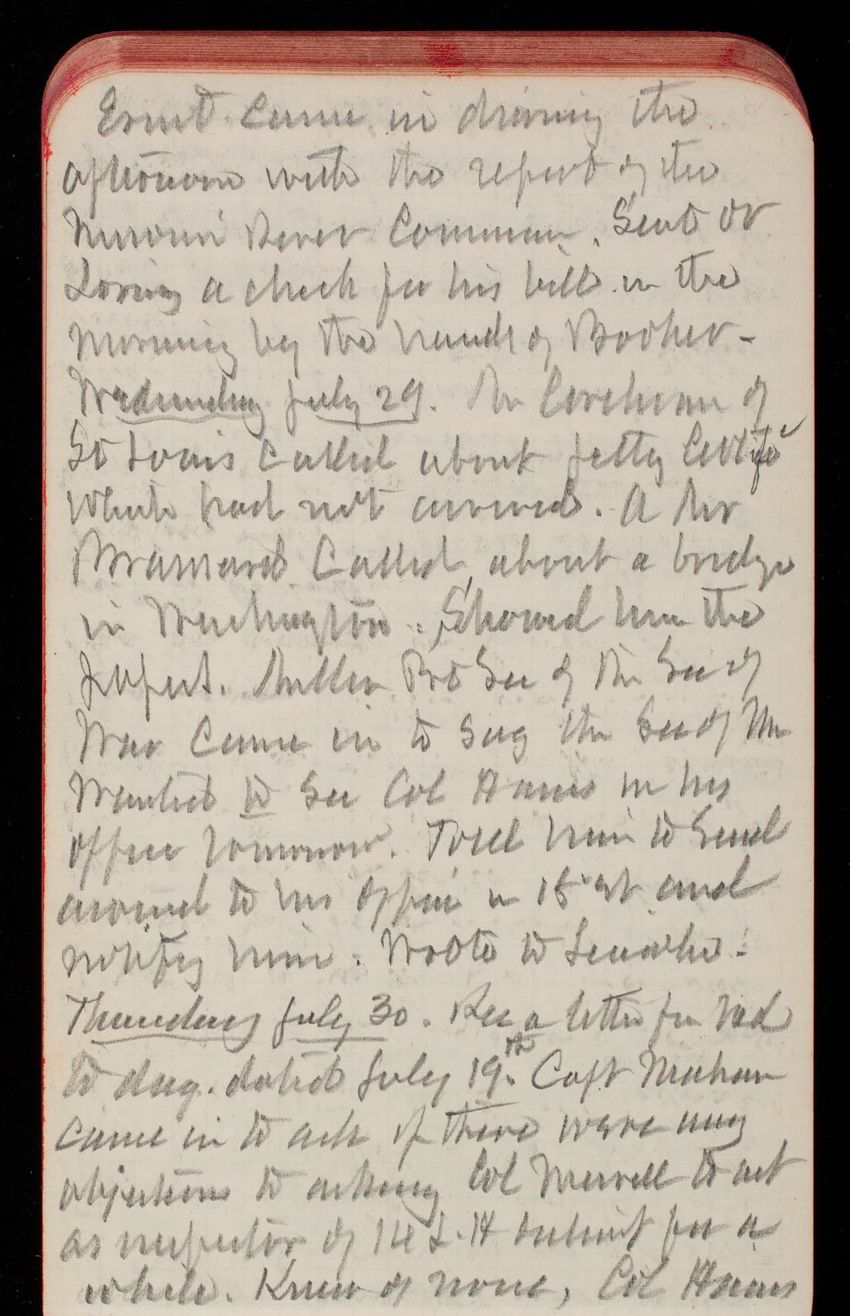 Ernst came in during the
afternoon with the report of the
Missouri River Commission. Sent Dr
Loring a check for his bill in the
morning by the hands of Booker -
Wednesday July 29. Mr Corchran of
St Louis called about petty
which had not arrived. A Mr
Brainard called about a bridge
in Washington. Showed him the
papers. Miller Pvt Sec of the Sec of
War came in to say the Sec of War
wanted to see Col Hains in his
office tomorrow. Told him to send
around to his office in 18th st and
notify him. Wrote to
Thursday July 30. Rec a letter from Ned
to day. dated July 19th. Capt Mahan
came in to ask if there were any
objections to asking Col Merrell to act
as inspector of 14 L.H district for a
while. Knew of none, Col Hains